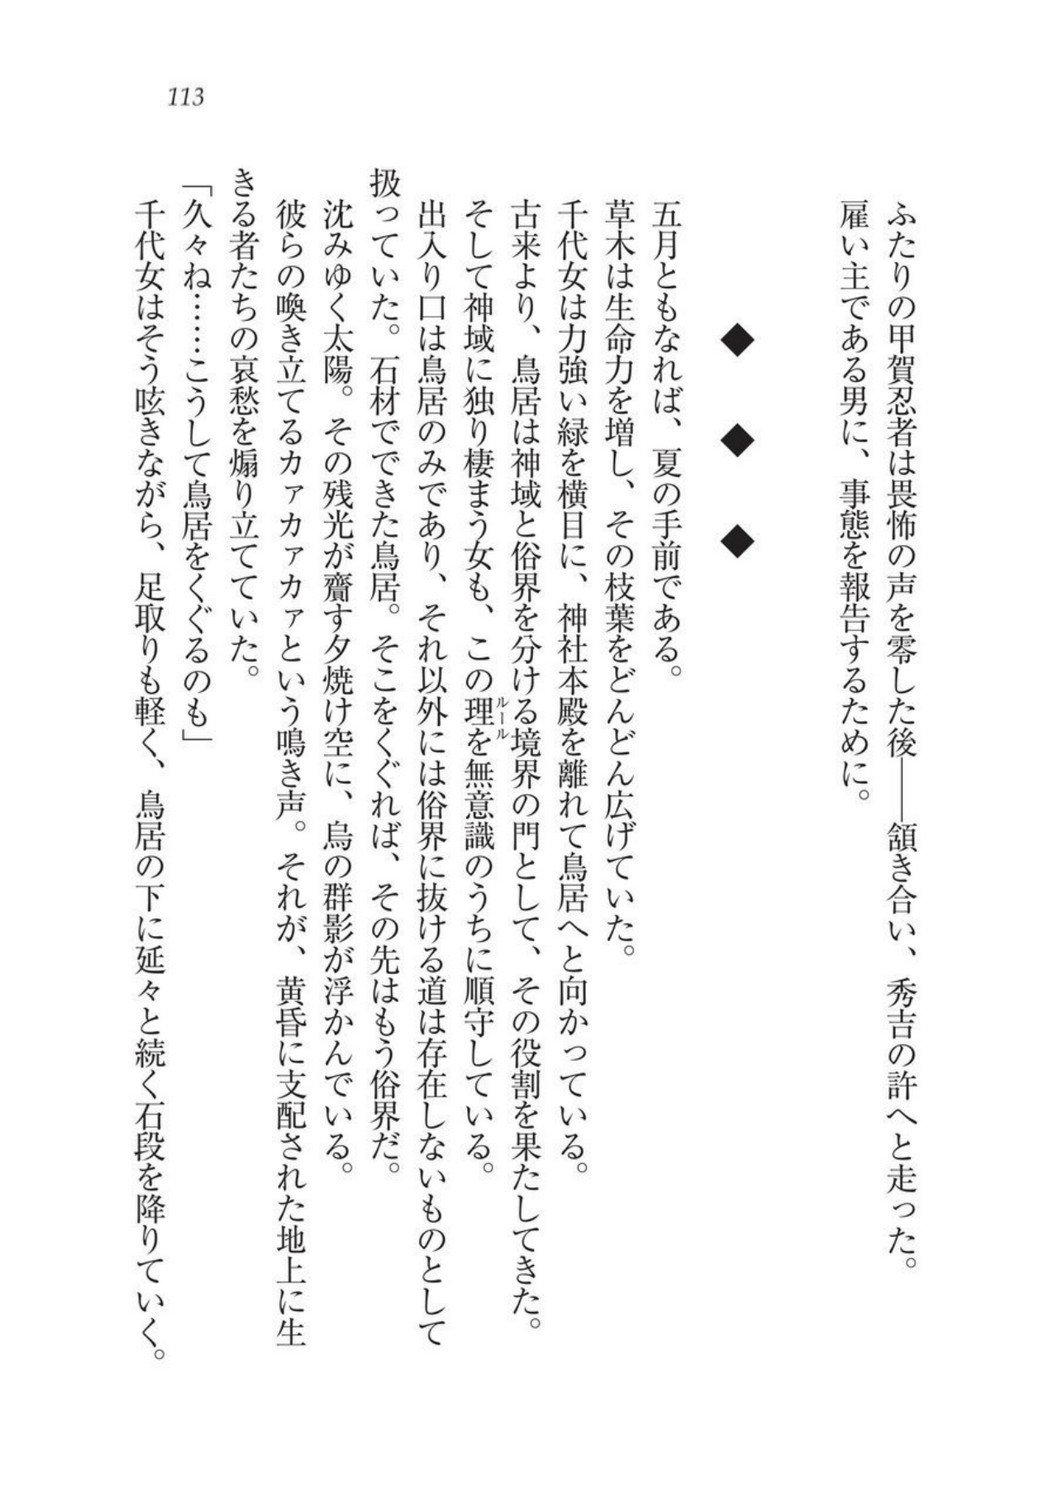 113
ふたりの甲賀忍者は畏怖の声を零した後――頷き合い、秀吉の許へと走った。
雇い主である男に、事態を報告するために。
◆ ◆ ◆
五月ともなれば、夏の手前である。
草木は生命力を増し、その枝葉をどんどん広げていた。
千代女は力強い緑を横目に、神社本殿を離れて鳥居へと向かっている。
古来より、鳥居は神域と俗界を分ける境界の門として、その役割を果たしてきた。
そして神域に独り棲まう女も、この理を無意識のうちに順守している。
ルール
出入り口は鳥居のみであり、それ以外には俗界に抜ける道は存在しないものとして
扱っていた。石材でできた鳥居。そこをくぐれば、その先はもう俗界だ。
沈みゆく太陽。その残光が齎す夕焼け空に、烏の群影が浮かんでいる。
彼らの喚き立てるカァカァカァという鳴き声。それが、黄昏に支配された地上に生
きる者たちの哀愁を煽り立てていた。
「久々ね……こうして鳥居をくぐるのも」
千代女はそう呟きながら、足取りも軽く、鳥居の下に延々と続く石段を降りていく。